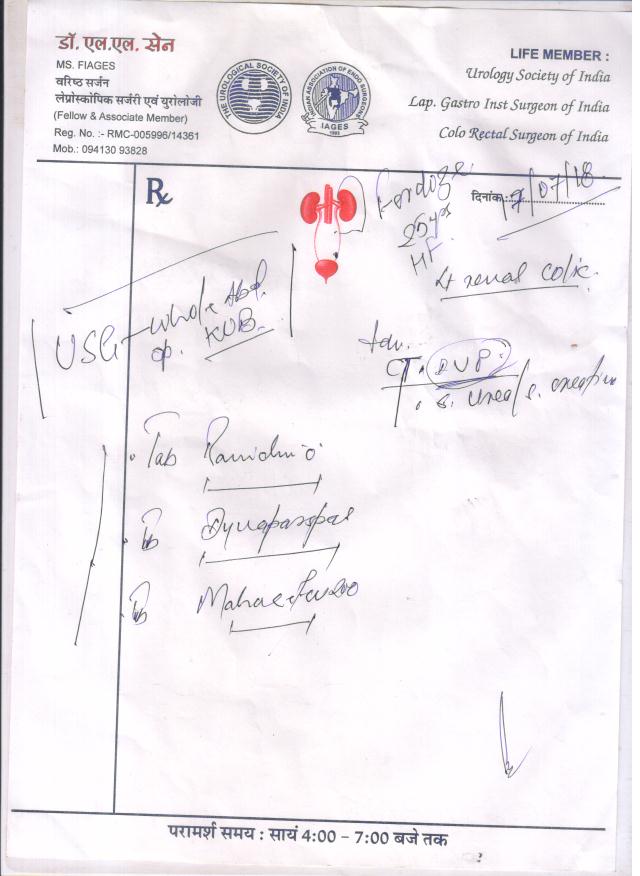 डॉ. एल.एल. सेन
MS. FIAGES
वरिष्ठ सर्जन
लेप्रोस्कोपिक सर्जरी एवं युरोलोजी
(Fellow & Associate Member)
Reg. No. :- RMC-005996/14361
Mob.: 094130 93828
THE UROLOGICAL SOCIETY OF INDIA
INDIAN ASSOCIATION OF ENDO SURGEONS
IAGES
1993
LIFE MEMBER :
Urology Society of India
Lap. Gastro Inst Surgeon of India
Colo Rectal Surgeon of India
Rx
दिनांक : 17/07/18
25 yrs
HF
renal colic.
USG - whole Abd.
KUB.
Adv.
CT. IVP.
s. urea/s. creatin
Tab
परामर्श समय : सायं 4:00 – 7:00 बजे तक